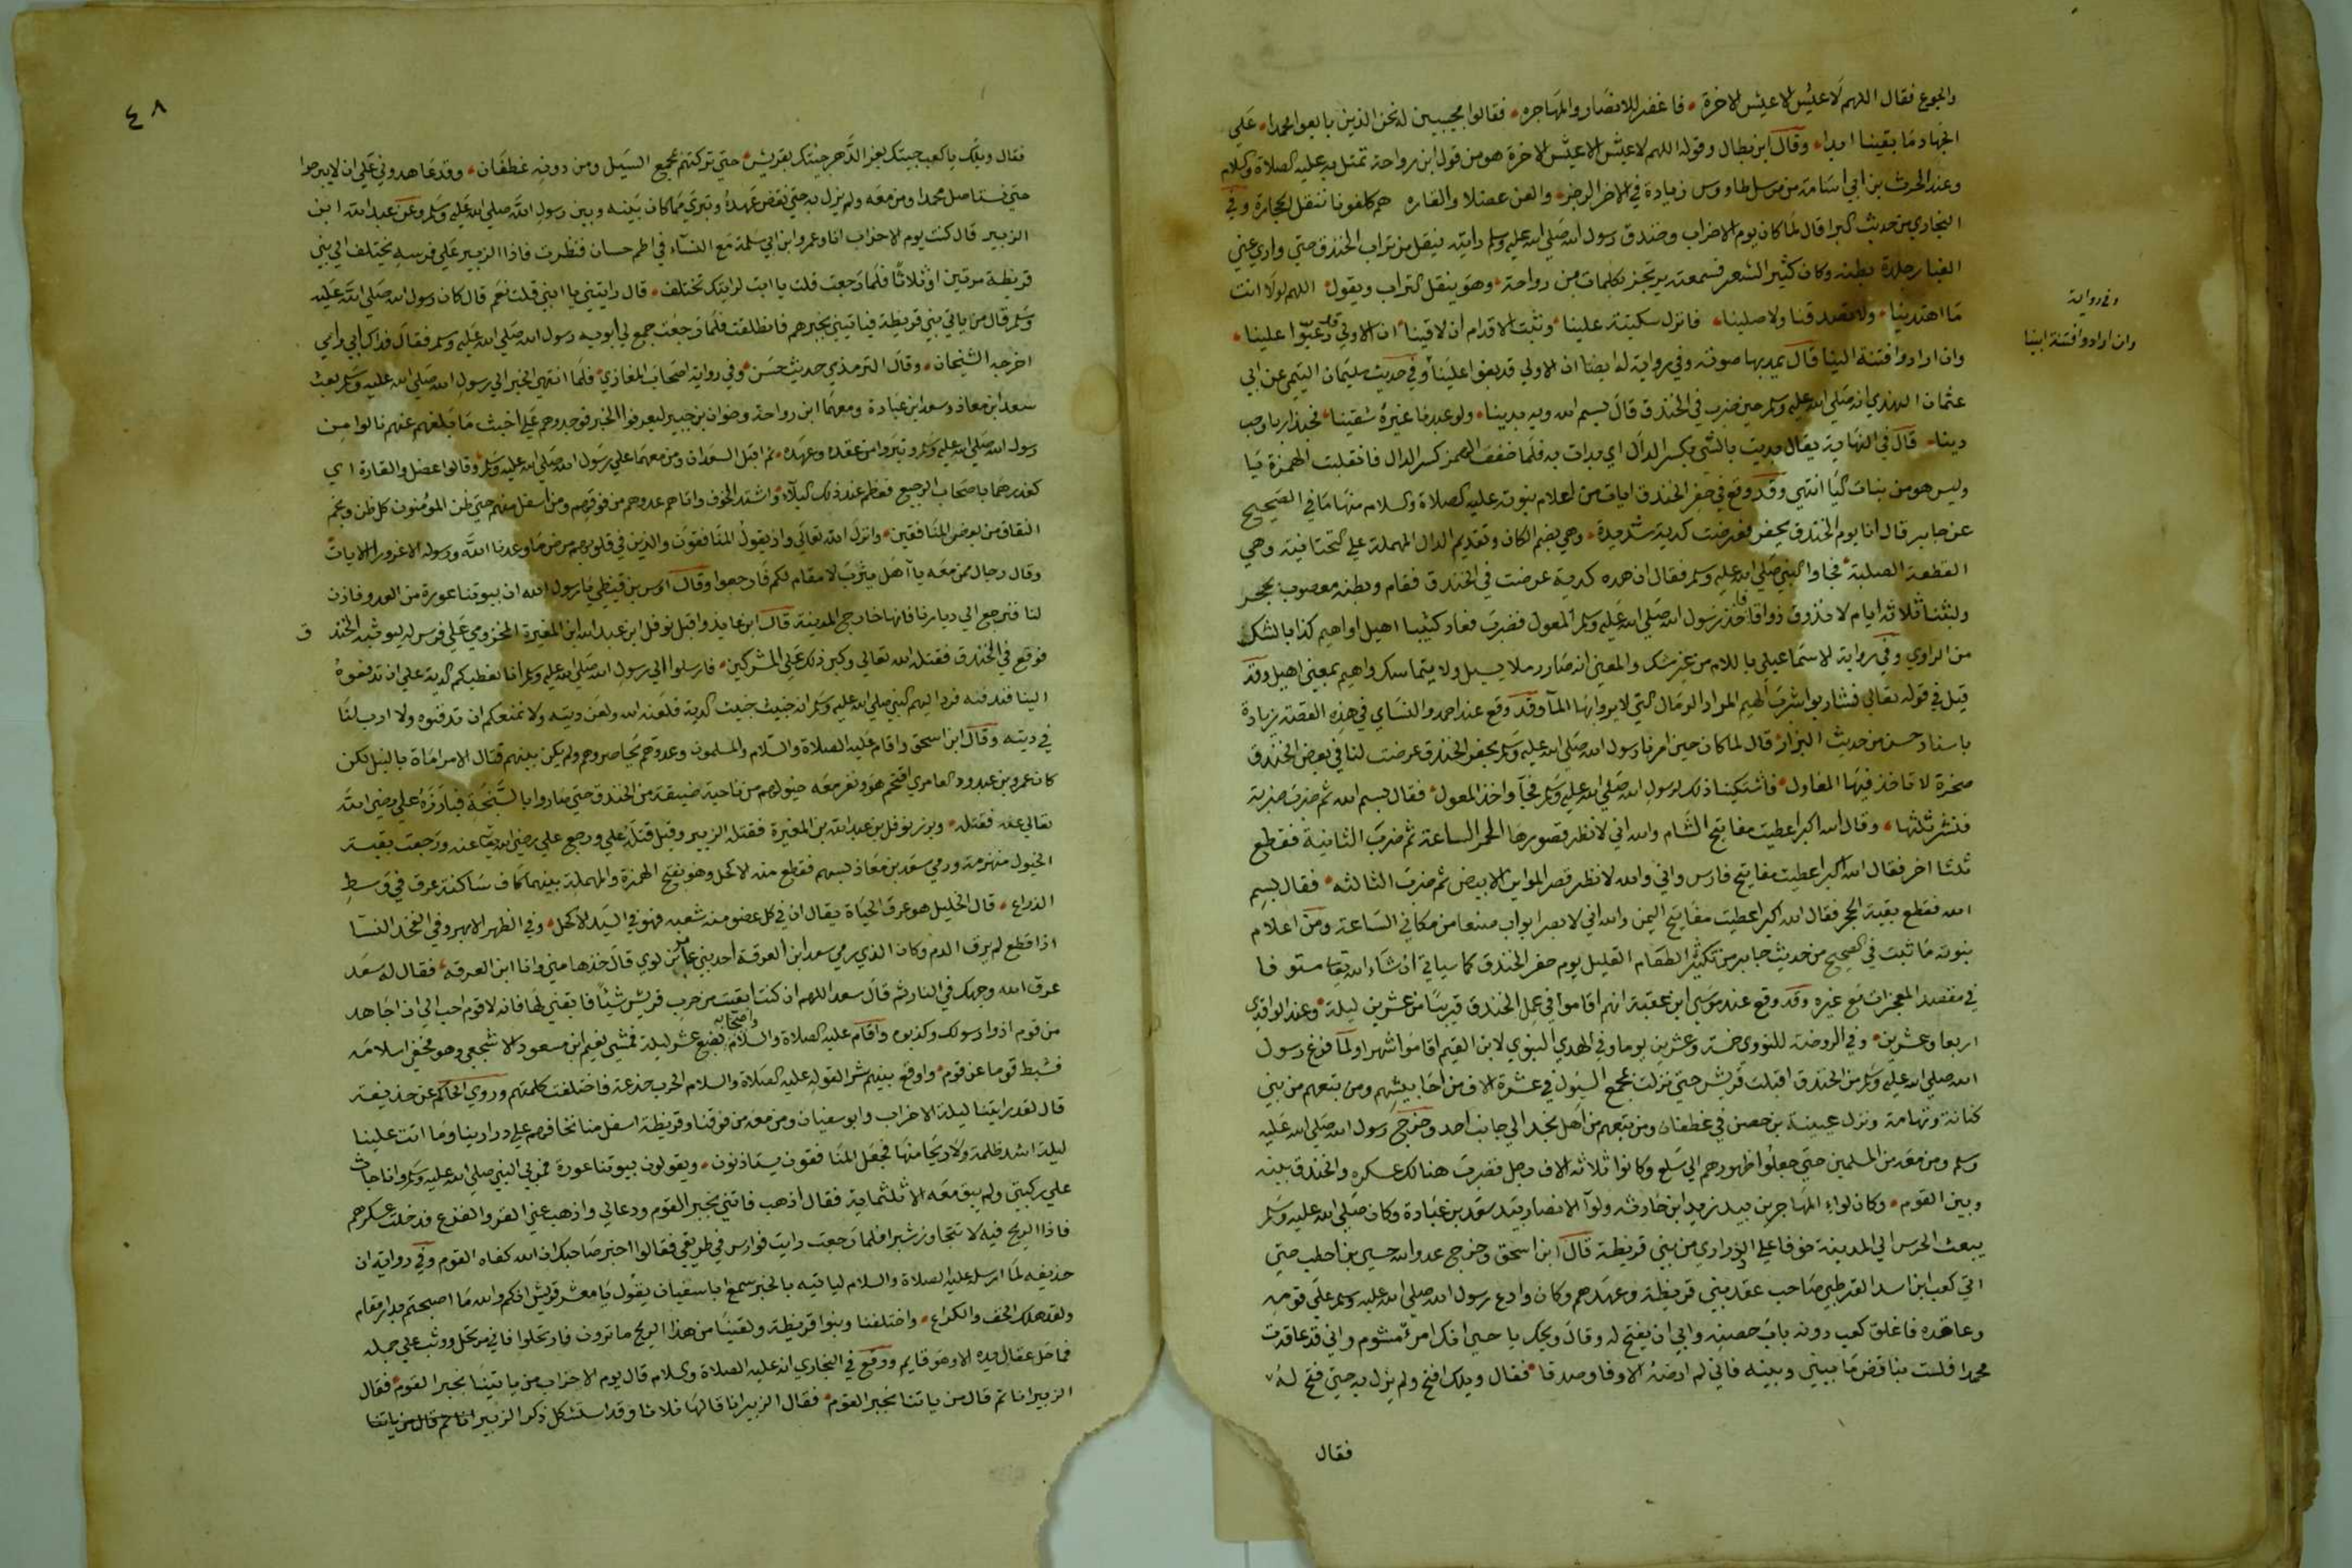 والجوع فقال اللهم لا عيش الا عيش الاخرة فاغفر للانصار والمهاجره فقالوا مجيبين له نحن الذين بايعوا محمدا على
الجهاد ما بقينا ابدا وقال ابن بطال وقوله اللهم لا عيش الا عيش الاخرة هو من قول ابن رواحة تمثل به عليه الصلاة والسلام
وعند الحرث بن ابي اسامة من مرسل طاووس زيادة في الاخر الرجز والعن عضلا والقاره هم كلفونا ننقل الحجارة وفي
البخاري من حديث البرا قال لما كان يوم الاحزاب وخندق رسول الله صلي الله عليه وسلم رايته ينقل من تراب الخندق حتي واري عني
الغبار جلدة بطنه وكان كثير الشعر فسمعته يرتجز بكلمات بن رواحة وهو ينقل التراب ويقول اللهم لولا انت
ما اهتدينا ولا تصدقنا ولا صلينا فانزل سكينة علينا وثبت الاقدام ان لاقينا ان الاولي قد رغبوا علينا
وفي رواية
وان ارادوا فتنة ابينا
وان ارادوا فتنة ابينا قال يمد بها صوته وفي رواية له ايضا ان الاولي قد بغوا علينا وفي حديث سليمان التيمي عن ابي
عثمان النهدي انه صلي الله عليه وسلم حين ضرب في الخندق قال بسم الله وبه بدينا ولو عبدنا غيره شقينا فحبذا ربا وحب
دينا قال في النهاية يقال بديت بالشي بكسر الدال اي بدات به فلما خفف الهمز كسر الدال فانقلبت الهمزة يا
وليس هو من بنات اليا انتهي وقد وقع في حفر الخندق ايات من اعلام نبوته عليه الصلاة والسلام منها ما في الصحيح
عن جابر قال انا يوم الخندق نحفر فعرضت كدية شديدة وهي بضم الكاف وتقديم الدال المهملة علي التحتانية وهي
القطعة الصلبة فجاوا النبي صلي الله عليه وسلم فقال ان هذه كدية عرضت في الخندق فقام وبطنه معصوب بحجر
ولبثنا ثلاثة ايام لا نذوق ذواقا فاخذ رسول الله صلي الله عليه وسلم المعول فضرب فعاد كثيبا اهيل او اهيم كذا بالشك
من الراوي وفي رواية الاسماعيلي باللام من غير شك والمعني انه صار رملا يسيل ولا يتماسك واهيم بمعني اهيل وقد
قيل في قوله تعالي فشاربوا شرب الهيم المراد الرمال التي لا يرويها الما وقد وقع عند احمد والنساي في هذه القصة زيادة
باسناد حسن من حديث البراء قال لما كان حين امرنا رسول الله صلي الله عليه وسلم بحفر الخندق عرضت لنا في بعض الخندق
صخرة لا تاخذ فيها المعاول فاشتكينا ذلك لرسول الله صلي الله عليه وسلم فجآ واخذ المعول فقال بسم الله ثم ضرب ضربة
فنشر ثلثها وقال الله اكبر اعطيت مفاتيح الشام والله اني لانظر قصورها الحمر الساعة ثم ضرب الثانية فقطع
ثلثا اخر فقال الله اكبر اعطيت مفاتيح فارس واني والله لانظر قصر المداين الابيض ثم ضرب الثالثه فقال بسم
الله فقطع بقية الحجر فقال الله اكبر اعطيت مفاتيح اليمن والله اني لابصر ابواب صنعا من مكاني الساعة ومن اعلام
نبوته ما ثبت في الصحيح من حديث جابر من تكثير الطعام القليل يوم حفر الخندق كما سياتي ان شاء الله تعا مستوفا
في مقصد المعجزات مع غيره وقد وقع عند موسي ابن عقبة انهم اقاموا في عمل الخندق قريبا من عشرين ليلة وعند الواقدي
اربعا وعشرين وفي الروضة للنووي خمسة وعشرين يوما وفي الهدي النبوي لابن القيم اقاموا شهرا ولما فرغ رسول
الله صلي الله عليه وسلم من الخندق اقبلت قريش حتي نزلت بمجمع السيول في عشرة الاف من احابيشهم ومن تبعهم من بني
كنانة وتهامة ونزل عيينة بن حصن في غطفان ومن تبعهم من اهل نجد الي جانب احد وخرج رسول الله صلي الله عليه
وسلم ومن معه من المسلمين حتي جعلوا ظهورهم الي سلع وكانوا ثلاثة الاف رجل فضرب هنالك عسكره والخندق بينه
وبين القوم وكان لواء المهاجرين بيد زيد ابن حارثه ولوآ الانصار بيد سعد بن عبادة وكان صلي الله عليه وسلم
يبعث الحرس الي المدينة خوفا علي الذراري من بني قريظة قال ابن اسحق وخرج عدو الله حيي بن اخطب حتي
اتي كعب ابن اسد القرظي صاحب عقد بني قريظة وعهدهم وكان وادع رسول الله صلي الله عليه وسلم علي قومه
وعاقده فاغلق كعب دونه باب حصنه وابي ان يفتح له وقال ويحك يا حيي انك امرء مشوم واني قد عاقدت
محمدا فلست بناقض ما بيني وبينه فاني لم ار منه الا وفا وصدقا فقال ويلك افتح ولم يزل به حتي فتح له
فقال
٤٨
فقال ويلك يا كعب جيتك بعز الدهر جيتك بقريش حتي تركتهم بمجمع السيل ومن دونه غطفان وقد عاهدوني علي ان لا يبرحوا
حتي نستاصل محمدا ومن معه ولم يزل به حتي نقض عهده وتبري مما كان بينه وبين رسول الله صلي الله عليه وسلم وعن عبد الله ابن
الزبير قال كنت يوم الاحزاب انا وعمرو ابن ابي سلمة مع النسآء في اطم حسان فنظرت فاذا الزبير علي فرسه يختلف الي بني
قريظة مرتين او ثلاثا فلما رجعت قلت يا ابت رايتك تختلف قال رايتني يا ابني قلت نعم قال كان رسول الله صلي الله عليه
وسلم قال من ياتي بني قريظة فياتيني بخبرهم فانطلقت فلما رجعت جمع لي ابويه رسول الله صلي الله عليه وسلم فقال فداك ابي وامي
اخرجه الشيخان وقال الترمذي حديث حسن وفي رواية اصحاب المغازي فلما انتهي الخبر الي رسول الله صلي الله عليه وسلم بعث
سعد ابن معاذ وسعد ابن عبادة ومعهما ابن رواحة وخوان بن جبير ليعرفوا الخبر فوجدوهم علي اخبث ما بلغهم عنهم نالوا من
رسول الله صلي الله عليه وسلم وتبروا من عقده وعهده ثم اقبل السعدان ومن معهما علي رسول الله صلي الله عليه وسلم وقالوا عضل والقارة اي
كغدرهما باصحاب الرجيع فعظم عند ذلك البلآء واشتد الخوف واتاهم عدوهم من فوقهم ومن اسفل منهم حتي ظن المؤمنون كل ظن ونجم
النفاق من بعض المنافقين وانزل الله تعالي واذ يقول المنافقون والذين في قلوبهم مرض ما وعدنا الله ورسوله الا غرورا الايات
وقال رجال ممن معه يا آهل يثرب لا مقام لكم فارجعوا وقال اوس بن قيظي يا رسول الله ان بيوتنا عورة من العدو فاذن
لنا فنرجع الي ديارنا فانها خارج المدينة قال ابن عايذ واقبل نوفل ابن عبد الله ابن المغيرة المخزومي علي فرس له ليوثبه الخند ق
فوقع في الخندق فقتله الله تعالي وكبر ذلك علي المشركين فارسلوا الي رسول الله صلي الله عليه وسلم انا نعطيكم الدية علي ان تدفعوه
الينا فندفنه فرد اليهم النبي صلي الله عليه وسلم انه خبيث خبيث الدية فلعنه الله ولعن ديته ولا نمنعكم ان تدفنوه ولا ارب لنا
في ديته وقال ابن اسحق واقام عليه الصلاة والسلام والمسلمون وعدوهم يحاصرونهم ولم يكن بينهم قتال الا مراماة بالنبل لكن
كان عمرو بن عبد ود العامري اقتحم هو ونفر معه خيولهم من ناحية ضيقة من الخندق حتي صاروا بالسبخة فبارزه علي رضي الله
تعالي عنه فقتله وبرز نوفل بن عبد الله بن المغيرة فقتله الزبير وقيل قتله علي ورجع علي رضي الله تعا عنه ورجعت بقية
الخيول منهزمة ورمي سعد بن معاذ بسهم فقطع منه الاكحل وهو بفتح الهمزة والمهملة بينهما كاف ساكنة عرق في وسط
الذراع قال الخليل هو عرق الحياة يقال ان في كل عضو منه شعبه فهو في اليد الاكحل وفي الظهر الابهر وفي الفخذ النسآ
اذا قطع لم يرق الدم وكان الذي رمي سعد ابن العرقة احد بني عامر بن لوي قال خذها مني وانا ابن العرقه فقال له سعد
عرق الله وجهك في النار ثم قال سعد اللهم ان كنت ابقيت من حرب قريش شيئا فابقني لها فانه لا قوم احب الي ان اجاهد
من قوم اذوا رسولك وكذبوه واقام عليه الصلاة والسلام واصحابه بضع عشر ليلة فمشي نعيم ابن مسعود الاشجعي وهو مخفي اسلامه
فثبط قوما عن قوم واوقع بينهم شرا لقوله عليه الصلاة والسلام الحرب خدعة فاختلفت كلمتهم وروي الحاكم عن حذيفة
قال لقد رايتنا ليلة الاحزاب وابو سفيان ومن معه من فوقنا وقريظة اسفل منا نخافهم علي ذرارينا وما اتت علينا
ليلة اشد ظلمة ولا ريحا منها فجعل المنافقون يستاذنون ويقولون بيوتنا عورة فمر بي النبي صلي الله عليه وسلم وانا جاث
علي ركبتي ولم يبق معه الا ثلثماية فقال اذهب فاتني بخبر القوم ودعا لي واذهب عني القر والفزع فدخلت عسكرهم
فاذا الريح فيه لا تتجاوز شبرا فلما رجعت رايت فوارس في طريقي فقالوا اخبر صاحبك ان الله كفاه القوم وفي رواية ان
حذيفه لما ارسله عليه الصلاة والسلام لياتيه بالخبر سمع ابا سفيان يقول يا معشر قريش انكم والله ما اصبحتم بدار مقام
ولقد هلك الخف والكراع واختلفنا وبنوا قريظة ولقينا من هذا الريح ما ترون فارتحلوا فاني مرتحل ووثب علي جمله
فما حل عقال يده الا وهو قايم ووقع في البخاري انه عليه الصلاة والسلام قال يوم الاحزاب من ياتينا بخبر القوم فقال
الزبير انا ثم قال من ياتنا بخبر القوم فقال الزبير انا قالها ثلاثا وقد استشكل ذكر الزبير انا ثم قال من ياتنا